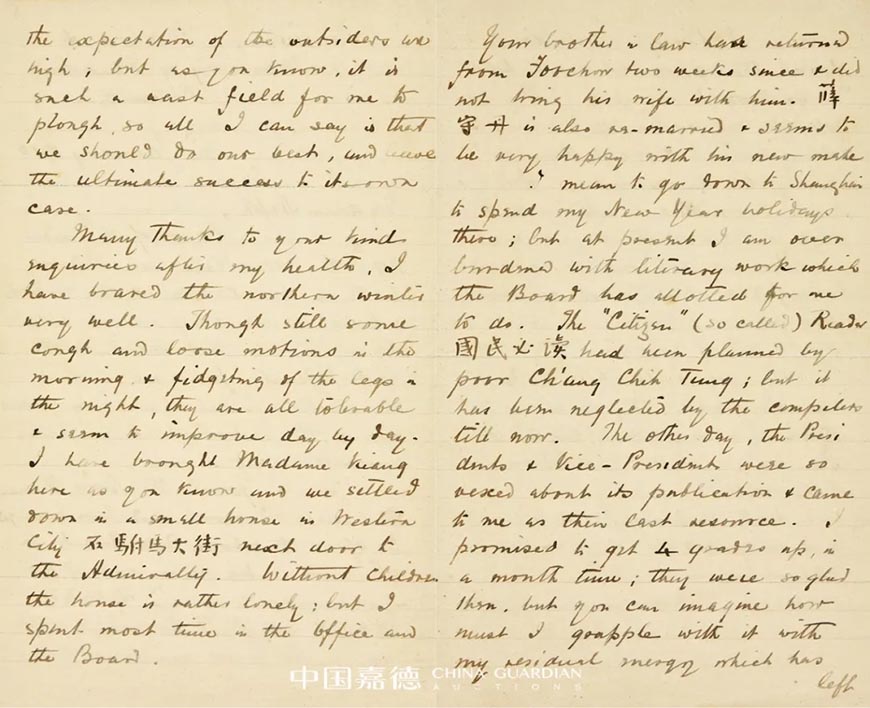 the expectation of the outsiders are
high; but as you know, it is
such a vast field for me to
plough, so all I can say is that
we should do our best, and leave
the ultimate success to its own
case.
Many thanks to your kind
enquiries after my health, I
have braved the northern winter
very well. Though still some
cough and loose motions in the
morning & fidgeting of the legs in
the night, they are all tolerable
& seem to improve day by day.
I have brought Madame Kiang
here as you know and we settled
down in a small house in Western
City 石駙馬大街 next door to
the Admiralty. Without children
the house is rather lonely; but I
spent most time in the office and
the Board.
Your brother in law have returned
from Foochow two weeks since & did
not bring his wife with him. 薛
守丹 is also re-married & seems to
be very happy with his new mate
I mean to go down to Shanghai
to spend my New Year holidays
there; but at present I am over
burdened with literary work which
the Board has allotted for me
to do. The "Citizen" (so called) Reader
國民必讀 had been planned by
poor Chang Chih Tung; but it
has been neglected by the compilers
till now. The other day, the Presi
dents & Vice-Presidents were so
vexed about its publication & came
to me as their last resource. I
promised to get 4 grades up, in
a month time; they were so glad
then, but you can imagine how
must I grapple with it with
my residual energy which has
left
中国嘉德 CHINA GUARDIAN
AUCTIONS